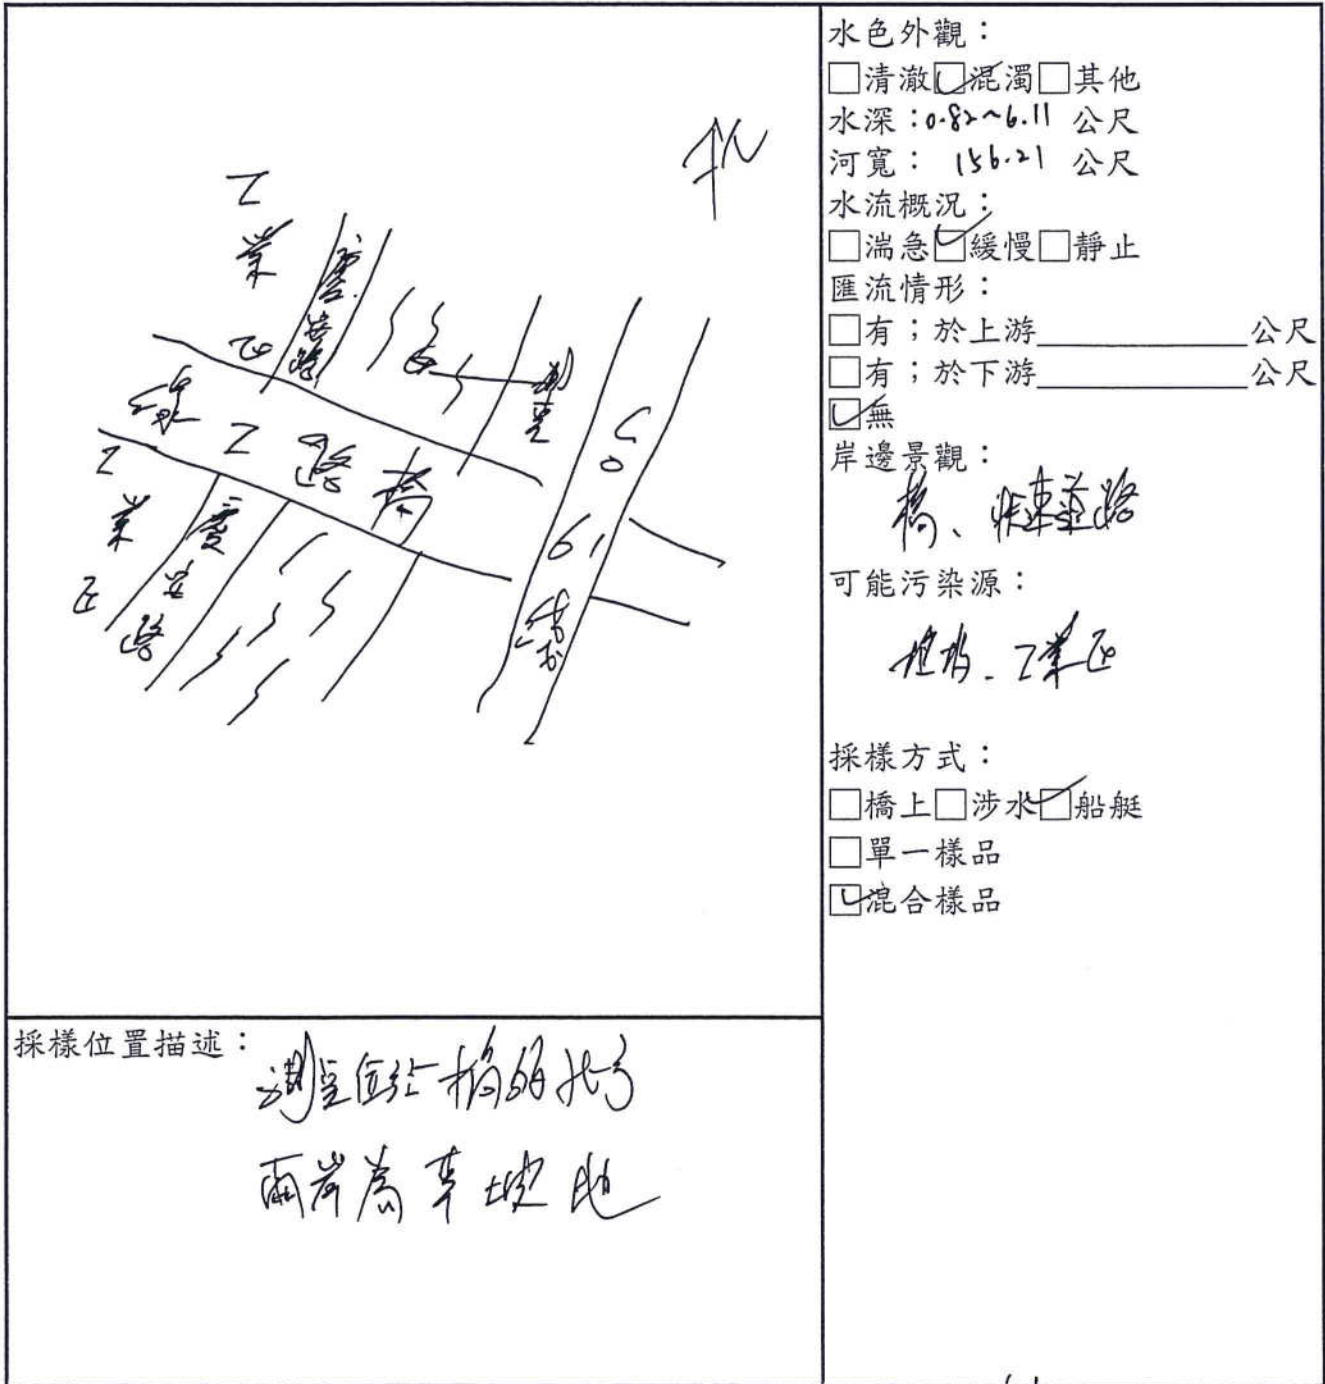 北
工
業
區
慶
安
路
測
量
綜工路橋
工
業
區
慶
安
路
61
線
水色外觀：
□清澈☑混濁□其他
水深：0.82~6.11 公尺
河寬： 156.21 公尺
水流概況：
□湍急☑緩慢□靜止
匯流情形：
□有；於上游＿＿＿＿＿＿公尺
□有；於下游＿＿＿＿＿＿公尺
☑無
岸邊景觀：
橋、快速道路
可能污染源：
工業區
採樣方式：
□橋上□涉水☑船艇
□單一樣品
☑混合樣品
採樣位置描述：
測量位於橋的
兩岸為草坡地